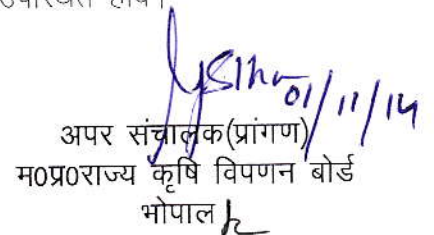 उपस्थित होवे।
01/11/14
अपर संचालक(प्रांगण)
म0प्र0राज्य कृषि विपणन बोर्ड
भोपाल